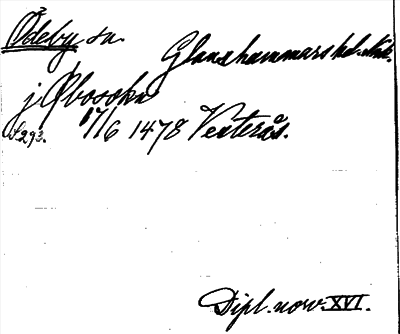 Ödeby sn.
Glanshammars hd. Nke.
j Øbosokn
s. 293.
17/6 1478 Vesterås.
Dipl. norv. XVI.